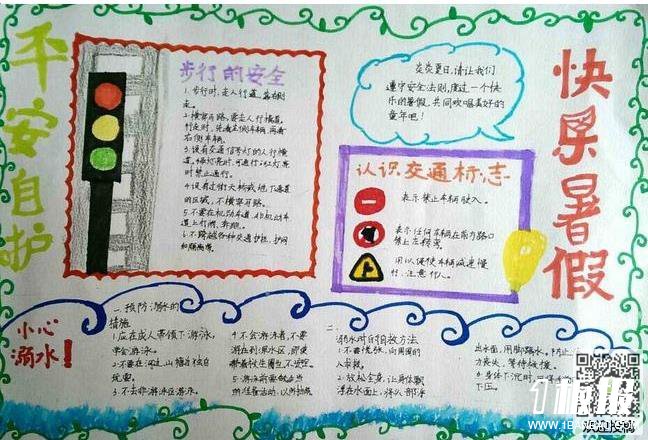 平安自护
快乐暑假
步行的安全
1.步行时,走人行道,靠右侧
走。
2.横穿马路,要走人行横道,
行走时,先看左侧车辆,再看
右侧车辆。
3.设有交通信号灯的人行横
道,绿灯亮时,可通行;红灯亮
时禁止通行。
4.设有过街天桥或地下通道
的区域,不横穿马路。
5.不要在机动车道、非机动车
道上行
6.不跨越各种交通护栏、护网
和隔离带。
炎炎夏日,请让我们
遵守安全法则,度过一个快
乐的暑假,共同欢唱美好的
童年吧!
认识交通标志
表示禁止车辆驶入。
表示任何车辆在前方路口
禁止左转弯。
用以促使车辆减速慢
行,注意行人。
小心
溺水!
一、预防溺水的
措施
1.应在成人带领下游泳,
学会游泳。
2.不要在河边、山塘边独自
玩耍。
3.不去非游泳区游泳。
4.不会游泳者,不要
游到深水区,即使
带着救生圈也不安全。
5.游泳前要做适当
的准备活动,以防抽筋
二、
溺水时的自救方法
1.不要慌张,向周围的
人呼救。
2.放松全身,让身体飘
浮在水面上,将头部浮
出水面,用脚踢水,防止
力丧失,等待救援。
3.身体下沉时,
下压。
1板报
WWW.1BANBAO.COM